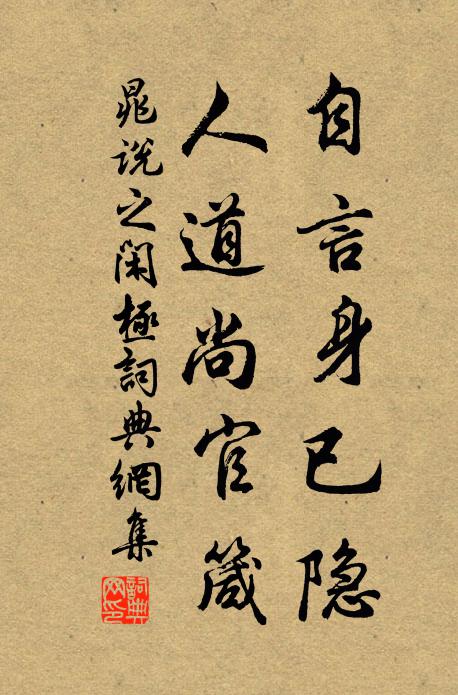 自言身已隐
人道尚官箴
晁说之闲极詞典網集
詞典网印